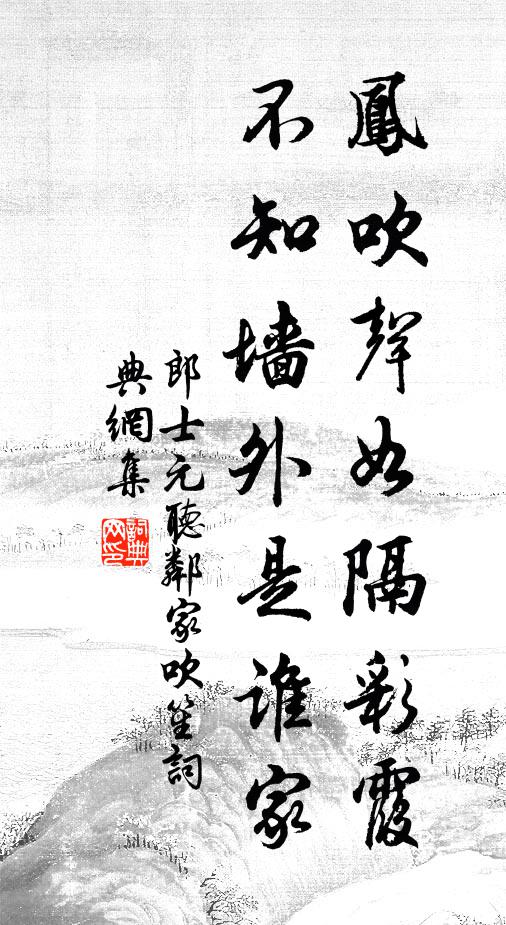 鳳吹聲如隔彩霞
不知墻外是誰家
郎士元聽鄰家吹笙詞
典網集
詞典
网印